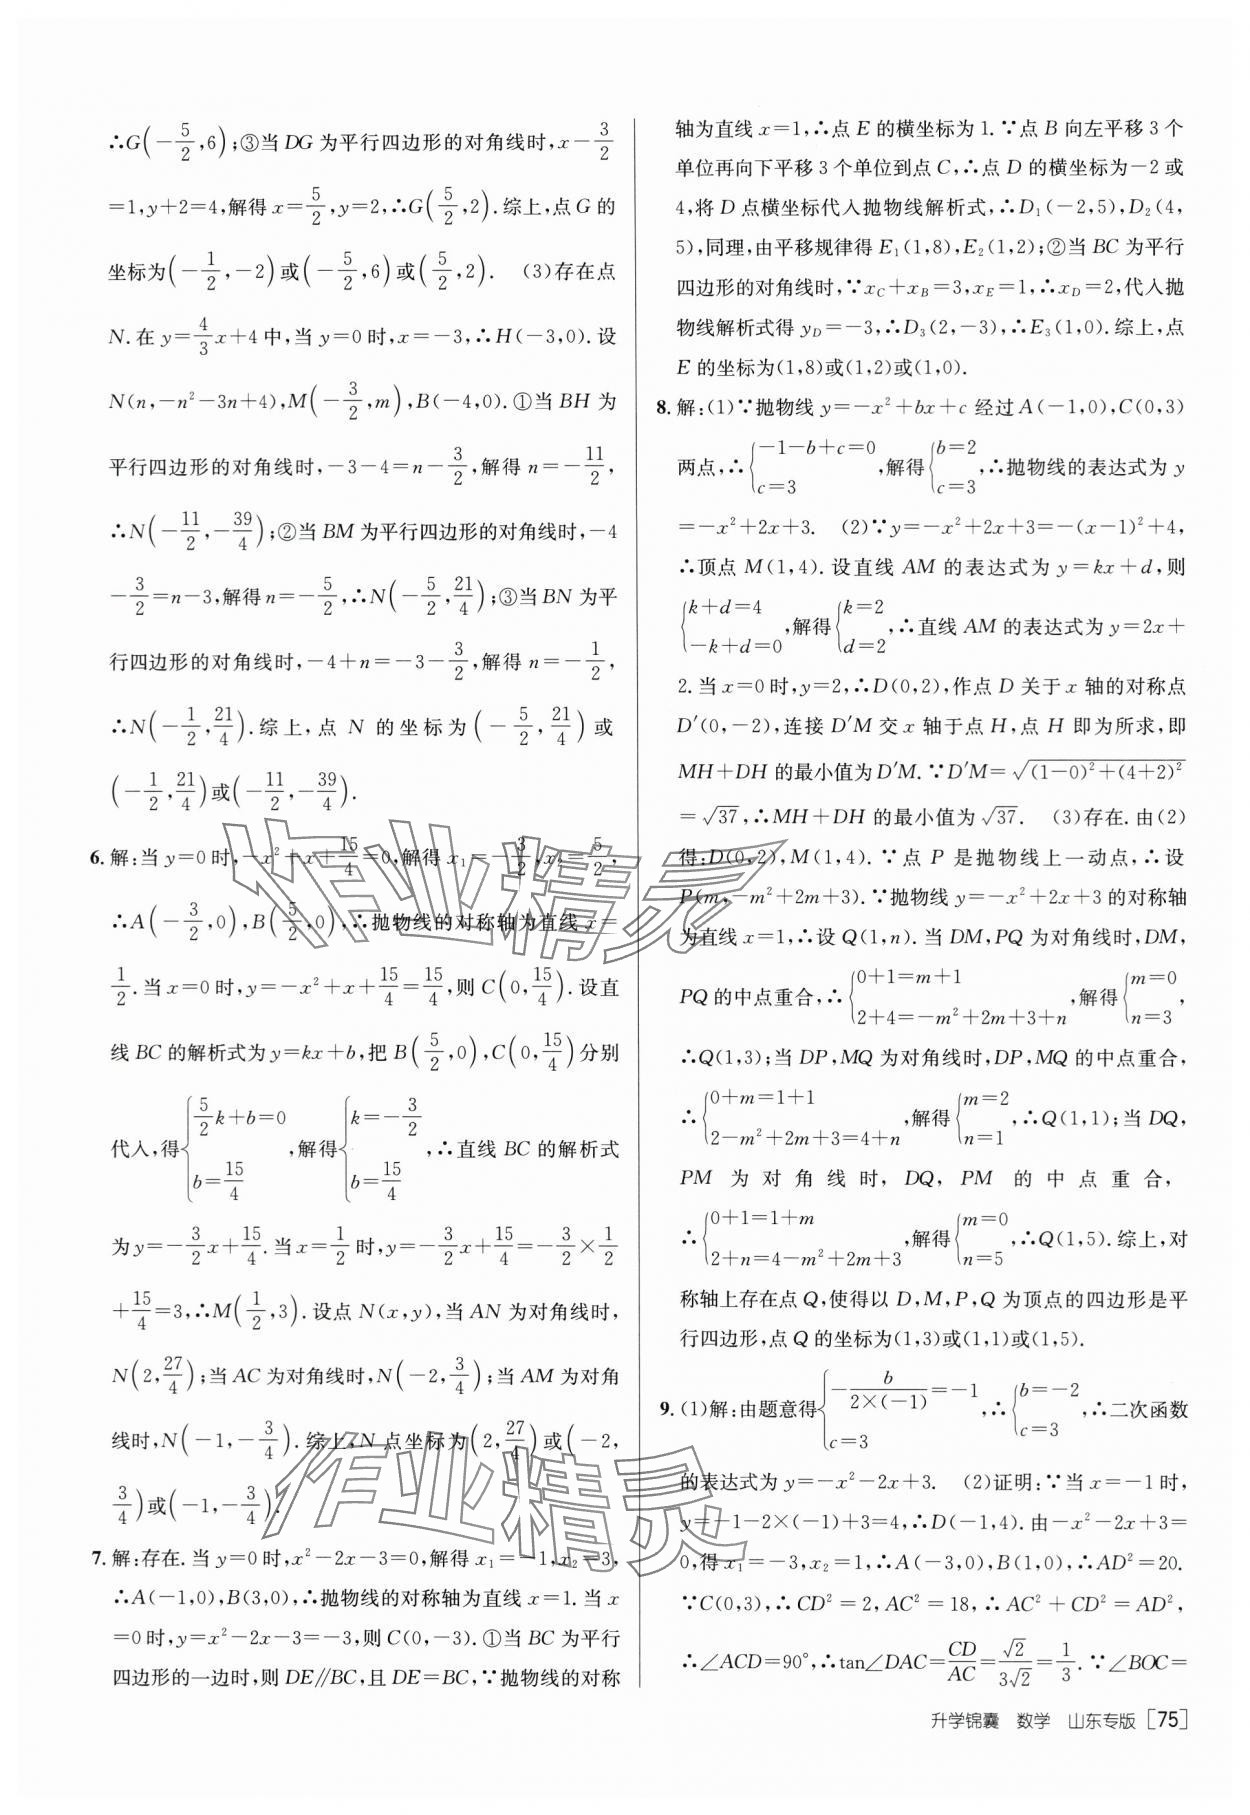 ∴G(−5/2,6);③当 DG 为平行四边形的对角线时,x−3/2
=1,y+2=4,解得 x=5/2,y=2,∴G(5/2,2).综上,点 G 的
坐标为(−1/2,−2)或(−5/2,6)或(5/2,2). (3)存在点
N.在 y=4/3x+4 中,当 y=0 时,x=−3,∴H(−3,0).设
N(n,−n²−3n+4),M(−3/2,m),B(−4,0).①当 BH 为
平行四边形的对角线时,−3−4=n−3/2,解得 n=−11/2,
∴N(−11/2,−39/4);②当 BM 为平行四边形的对角线时,−4
−3/2=n−3,解得 n=−5/2,∴N(−5/2,21/4);③当 BN 为平
行四边形的对角线时,−4+n=−3−3/2,解得 n=−1/2,
∴N(−1/2,21/4).综上,点 N 的坐标为(−5/2,21/4)或
(−1/2,21/4)或(−11/2,−39/4).
6. 解:当 y=0 时,−x²+x+15/4=0,解得 x₁=−3/2,x₂=5/2,
∴A(−3/2,0),B(5/2,0),∴抛物线的对称轴为直线 x=
1/2.当 x=0 时,y=−x²+x+15/4=15/4,则 C(0,15/4).设直
线 BC 的解析式为 y=kx+b,把 B(5/2,0),C(0,15/4)分别
代入,得{5/2k+b=0 b=15/4,解得{k=−3/2 b=15/4,∴直线 BC 的解析式
为 y=−3/2x+15/4.当 x=1/2 时,y=−3/2x+15/4=−3/2×1/2
+15/4=3,∴M(1/2,3).设点 N(x,y),当 AN 为对角线时,
N(2,27/4);当 AC 为对角线时,N(−2,3/4);当 AM 为对角
线时,N(−1,−3/4).综上,N 点坐标为(2,27/4)或(−2,
3/4)或(−1,−3/4).
7. 解:存在.当 y=0 时,x²−2x−3=0,解得 x₁=−1,x₂=3,
∴A(−1,0),B(3,0),∴抛物线的对称轴为直线 x=1.当 x
=0 时,y=x²−2x−3=−3,则 C(0,−3).①当 BC 为平行
四边形的一边时,则 DE∥BC,且 DE=BC,∵抛物线的对称
轴为直线 x=1,∴点 E 的横坐标为 1.∵点 B 向左平移 3 个
单位再向下平移 3 个单位到点 C,∴点 D 的横坐标为−2 或
4,将 D 点横坐标代入抛物线解析式,∴D₁(−2,5),D₂(4,
5),同理,由平移规律得 E₁(1,8),E₂(1,2);②当 BC 为平行
四边形的对角线时,∵x_C+x_B=3,x_E=1,∴x_D=2,代入抛
物线解析式得 y_D=−3,∴D₃(2,−3),∴E₃(1,0).综上,点
E 的坐标为(1,8)或(1,2)或(1,0).
8. 解:(1)∵抛物线 y=−x²+bx+c 经过 A(−1,0),C(0,3)
两点,∴{−1−b+c=0 c=3,解得{b=2 c=3,∴抛物线的表达式为 y
=−x²+2x+3. (2)∵y=−x²+2x+3=−(x−1)²+4,
∴顶点 M(1,4).设直线 AM 的表达式为 y=kx+d,则
{k+d=4 −k+d=0,解得{k=2 d=2,∴直线 AM 的表达式为 y=2x+
2.当 x=0 时,y=2,∴D(0,2),作点 D 关于 x 轴的对称点
D′(0,−2),连接 D′M 交 x 轴于点 H,点 H 即为所求,即
MH+DH 的最小值为 D′M.∵D′M=√((1−0)²+(4+2)²)
=√37,∴MH+DH 的最小值为√37. (3)存在.由(2)
得:D(0,2),M(1,4).∵点 P 是抛物线上一动点,∴设
P(m,−m²+2m+3).∵抛物线 y=−x²+2x+3 的对称轴
为直线 x=1,∴设 Q(1,n).当 DM,PQ 为对角线时,DM,
PQ 的中点重合,∴{0+1=m+1 2+4=−m²+2m+3+n,解得{m=0 n=3,
∴Q(1,3);当 DP,MQ 为对角线时,DP,MQ 的中点重合,
∴{0+m=1+1 2−m²+2m+3=4+n,解得{m=2 n=1,∴Q(1,1);当 DQ,
PM 为对角线时,DQ,PM 的中点重合,
∴{0+1=1+m 2+n=4−m²+2m+3,解得{m=0 n=5,∴Q(1,5).综上,对
称轴上存在点 Q,使得以 D,M,P,Q 为顶点的四边形是平
行四边形,点 Q 的坐标为(1,3)或(1,1)或(1,5).
9. (1)解:由题意得{−b/(2×(−1))=−1 c=3,∴{b=−2 c=3,∴二次函数
的表达式为 y=−x²−2x+3. (2)证明:∵当 x=−1 时,
y=−1−2×(−1)+3=4,∴D(−1,4).由−x²−2x+3=
0,得 x₁=−3,x₂=1,∴A(−3,0),B(1,0),∴AD²=20.
∵C(0,3),∴CD²=2,AC²=18,∴AC²+CD²=AD²,
∴∠ACD=90°,∴tan∠DAC=CD/AC=√2/3√2=1/3.∵∠BOC=
升学锦囊 数学 山东专版[75]
作业精灵
作业精灵